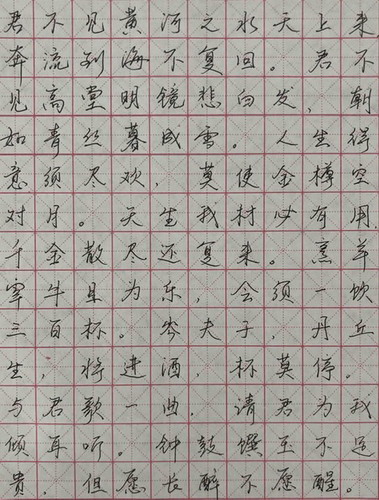 君不见黄河之水天上来
奔流到海不复回。君不
见高堂明镜悲白发，朝
如青丝暮成雪。人生得
意须尽欢，莫使金樽空
对月。天生我材必有用，
千金散尽还复来。烹羊
宰牛且为乐，会须一饮
三百杯。岑夫子，丹丘
生，将进酒，杯莫停。
与君歌一曲，请君为我
倾耳听。钟鼓馔玉不足
贵，但愿长醉不愿醒。